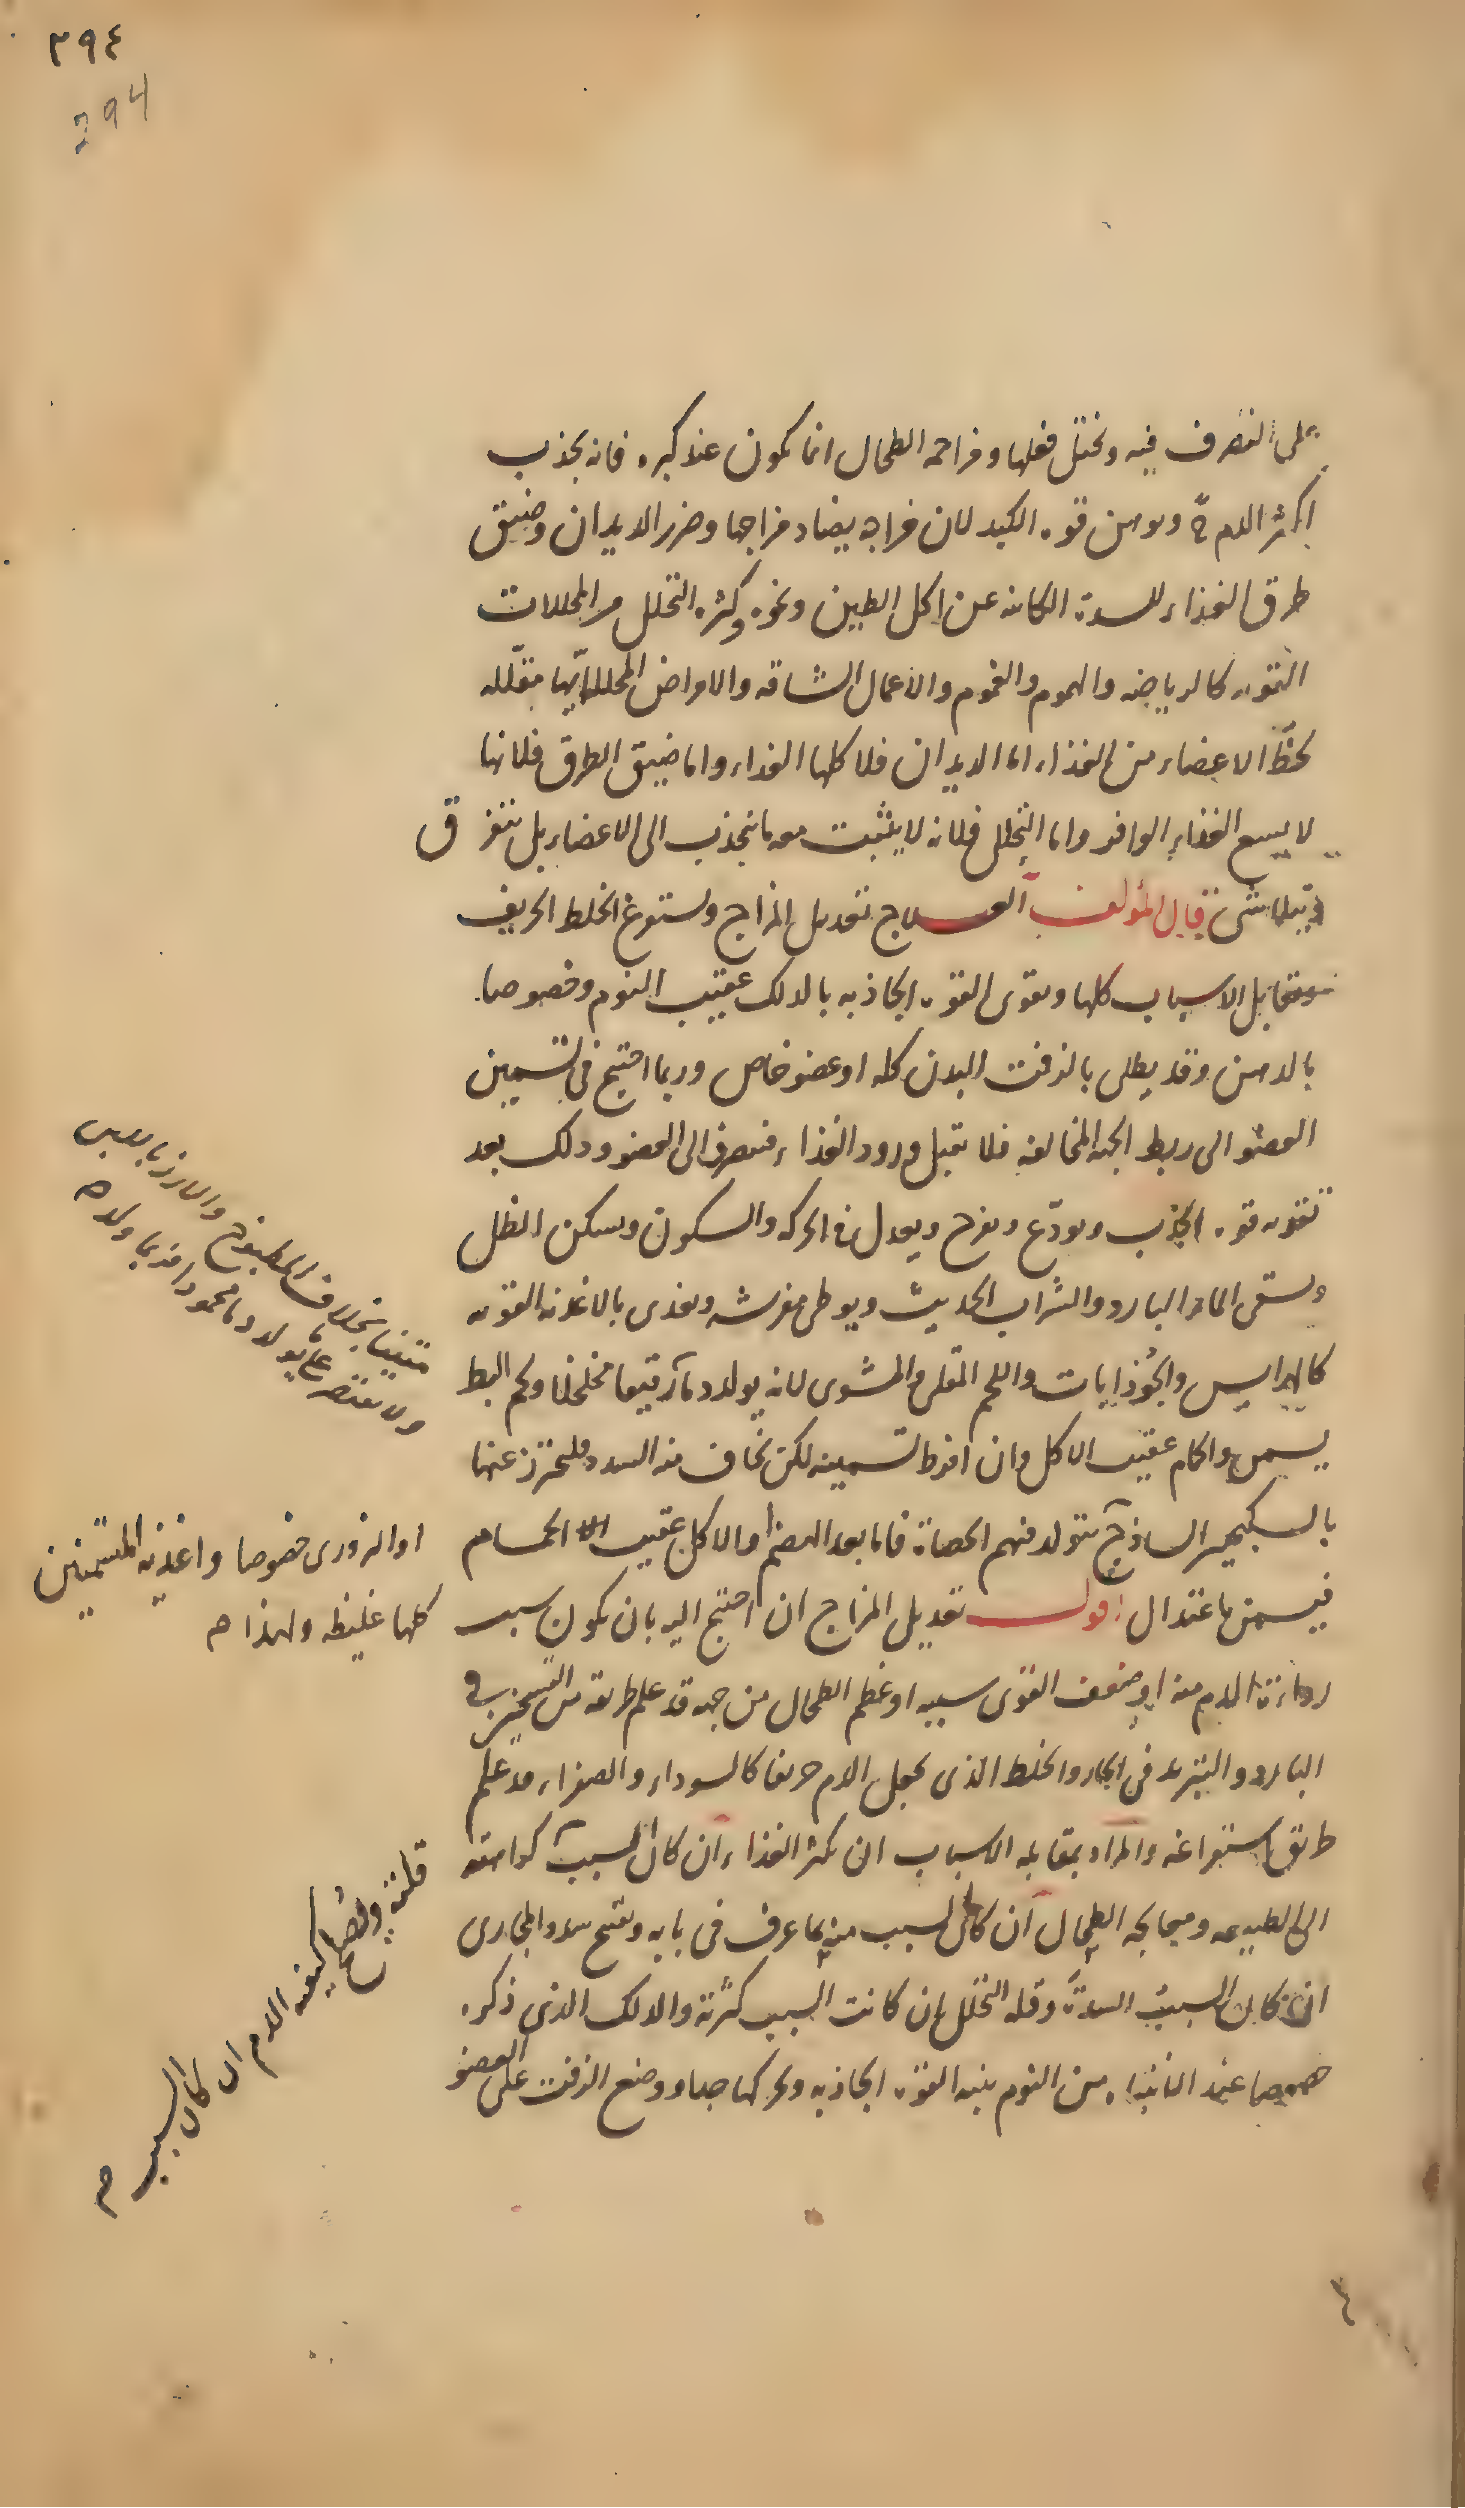 ٣٩٤
394
على التصرف فيه ويختل فعلها ومزاحمة الطحال انما يكون عند كبره فانه يجذب
اكثر الدم ويوهن قوة الكبد لان مزاجه يضاد مزاجها وضرر الديدان وضيق
طرق الغذاء للسدة الكائنة عن اكل الطين ونحوه وكثرة التحلل من المحللات
القوية كالرياضة والهموم والغموم والاعمال الشاقة والامراض المحللة انها مقللة
لحظ الاعضاء من الغذاء اما الديدان فلاكلها الغذاء واما ضيق الطرق فلانها
لا يسع الغذاء الوافر واما التحلل فلانه لا يثبت معه ما ينجذب الى الاعضاء بل يتفرق
ويتلاشى قال المؤلف العلاج تعديل المزاج ويستفرغ الخلط الحريف
ويقابل الاسباب كلها ويقوى القوة الجاذبة بالدلك عقيب النوم وخصوصا
بالدهن وقد يطلى بالزفت البدن كله او عضو خاص وربما احتيج في تسمين
العضو الى ربط الجهة المخالفة فلا تقبل ورود الغذاء فينصرف الى العضو وذلك بعد
تقوية قوة الجذب ويودع ويفرح ويعدل في الحركة والسكون ويسكن الظل
ويسقى الماء البارد والشراب الحديث ويوطى مفرشه ويغذى بالاغذية القوية
كالهرايس والجوذابات واللحم المقلي والمشوى لانه يولد دما رقيقا مخلخلا ولحم البط
يسمن والحمام عقيب الاكل وان افرط تسمينه لكن يخاف منه السدد فليحترز عنها
بالسكنجبين الساذج يتولد منهم الحصاة فاما بعد الهضم والاكل عقيب الحمام
فيسمن باعتدال اقول تعديل المزاج ان احتيج اليه بان يكون سبب
رداءة الدم منه او ضعف القوى بسببه او عظم الطحال من جهته قد علم طريقه من التسخين في
البارد والتبريد في الحار والخلط الذى يجعل الدم حريفا كالسوداء والصفراء قد علم
طريق استفراغه والمراد بمقابلة الاسباب ان يكثر الغذاء ان كان السبب
الى الطبيعة ومعالجة الطحال ان كان السبب منه بما عرف في بابه وتفتح سدد المجارى
ان كان السبب السدة وقلة التحلل ان كانت السبب كثرته والدلك الذى ذكره
خصوصا عند الانتباه من النوم ينبه القوة الجاذبة ويحركها جدا ووضع الزفت على العضو
متينا بخلاف المطبوخ والارز باللبن
ولا يقتصر على ما يولد دما محمودا
او البزورى خصوصا واغذية المتسمنين
كلها غليظة ولهذا م
قلته ويصلح كيفية الدم ان كان السبب م